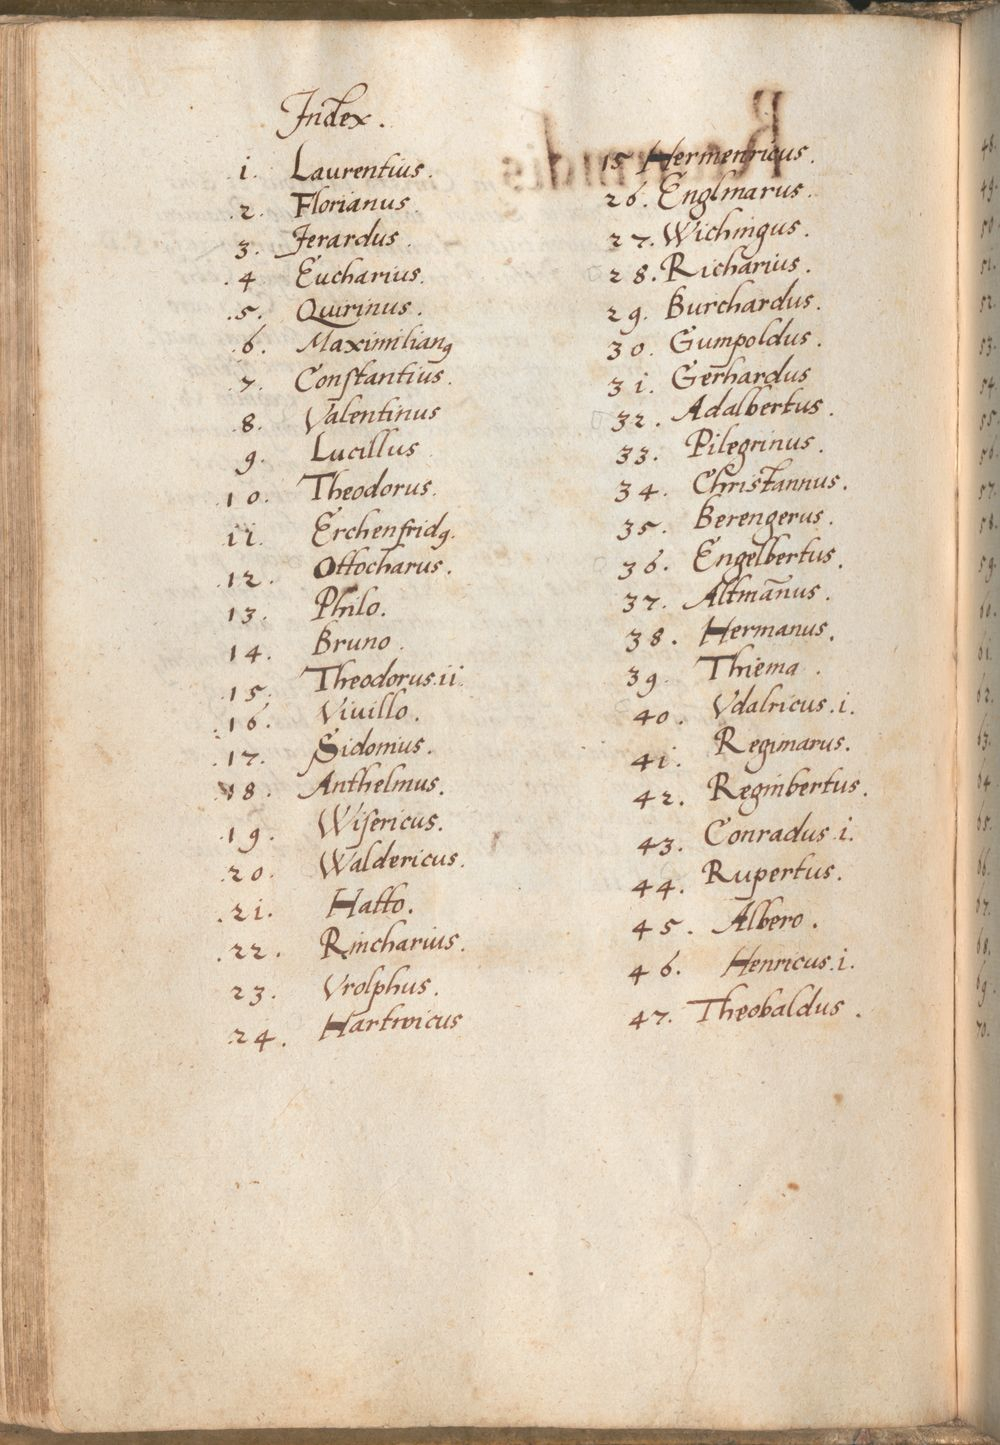 Index.
1. Laurentius.
.2. Florianus
3. Jerardus.
.4 Eucharius.
.5. Quirinus.
.6. Maximilianꝰ
.7. Constantius.
.8. Valentinus
9. Lucillus
.10. Theodorus.
.11. Erchenfridꝰ.
.12. Ottocharus.
13. Philo.
14. Bruno.
.15. Theodorus.ii.
.16. Viuillo.
.17. Sidomius.
18. Anthelmus.
.19. Wisericus.
.20. Waldericus.
.21. Hatto.
.22. Rincharius.
23. Vrolphus.
.24. Hartwicus
15 Hermenricus.
26. Englmarus.
27. Wichingus.
28. Richarius.
29. Burchardus.
30. Gumpoldus.
31. Gerhardus
32. Adalbertus.
33. Pilegrinus.
34. Christannus.
35. Berengerus.
36. Engelbertus.
37. Altmānus.
38. Hermanus.
39. Thiema.
40. Vdalricus.i.
41. Regimarus.
42. Reginbertus.
43. Conradus.i.
44. Rupertus.
45. Albero.
46. Henricus.i.
47. Theobaldus.